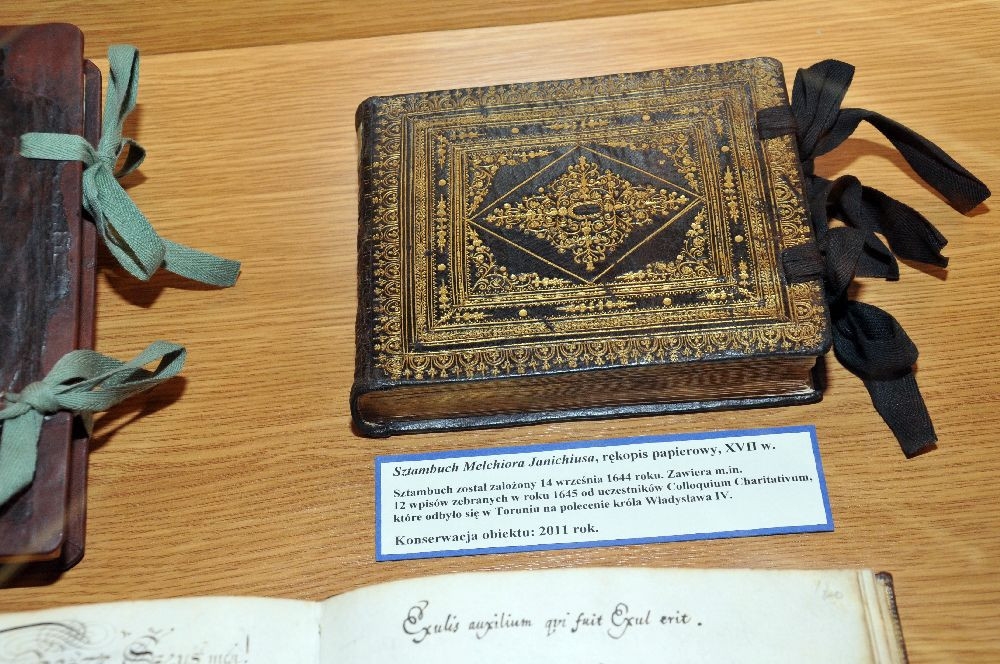 Sztambuch Melchiora Janichiusa, rękopis papierowy, XVII w.
Sztambuch został założony 14 września 1644 roku. Zawiera m.in.
12 wpisów zebranych w roku 1645 od uczestników Colloquium Charitativum,
które odbyło się w Toruniu na polecenie króla Władysława IV.
Konserwacja obiektu: 2011 rok.
Exulis auxilium qvi fuit Exul erit.